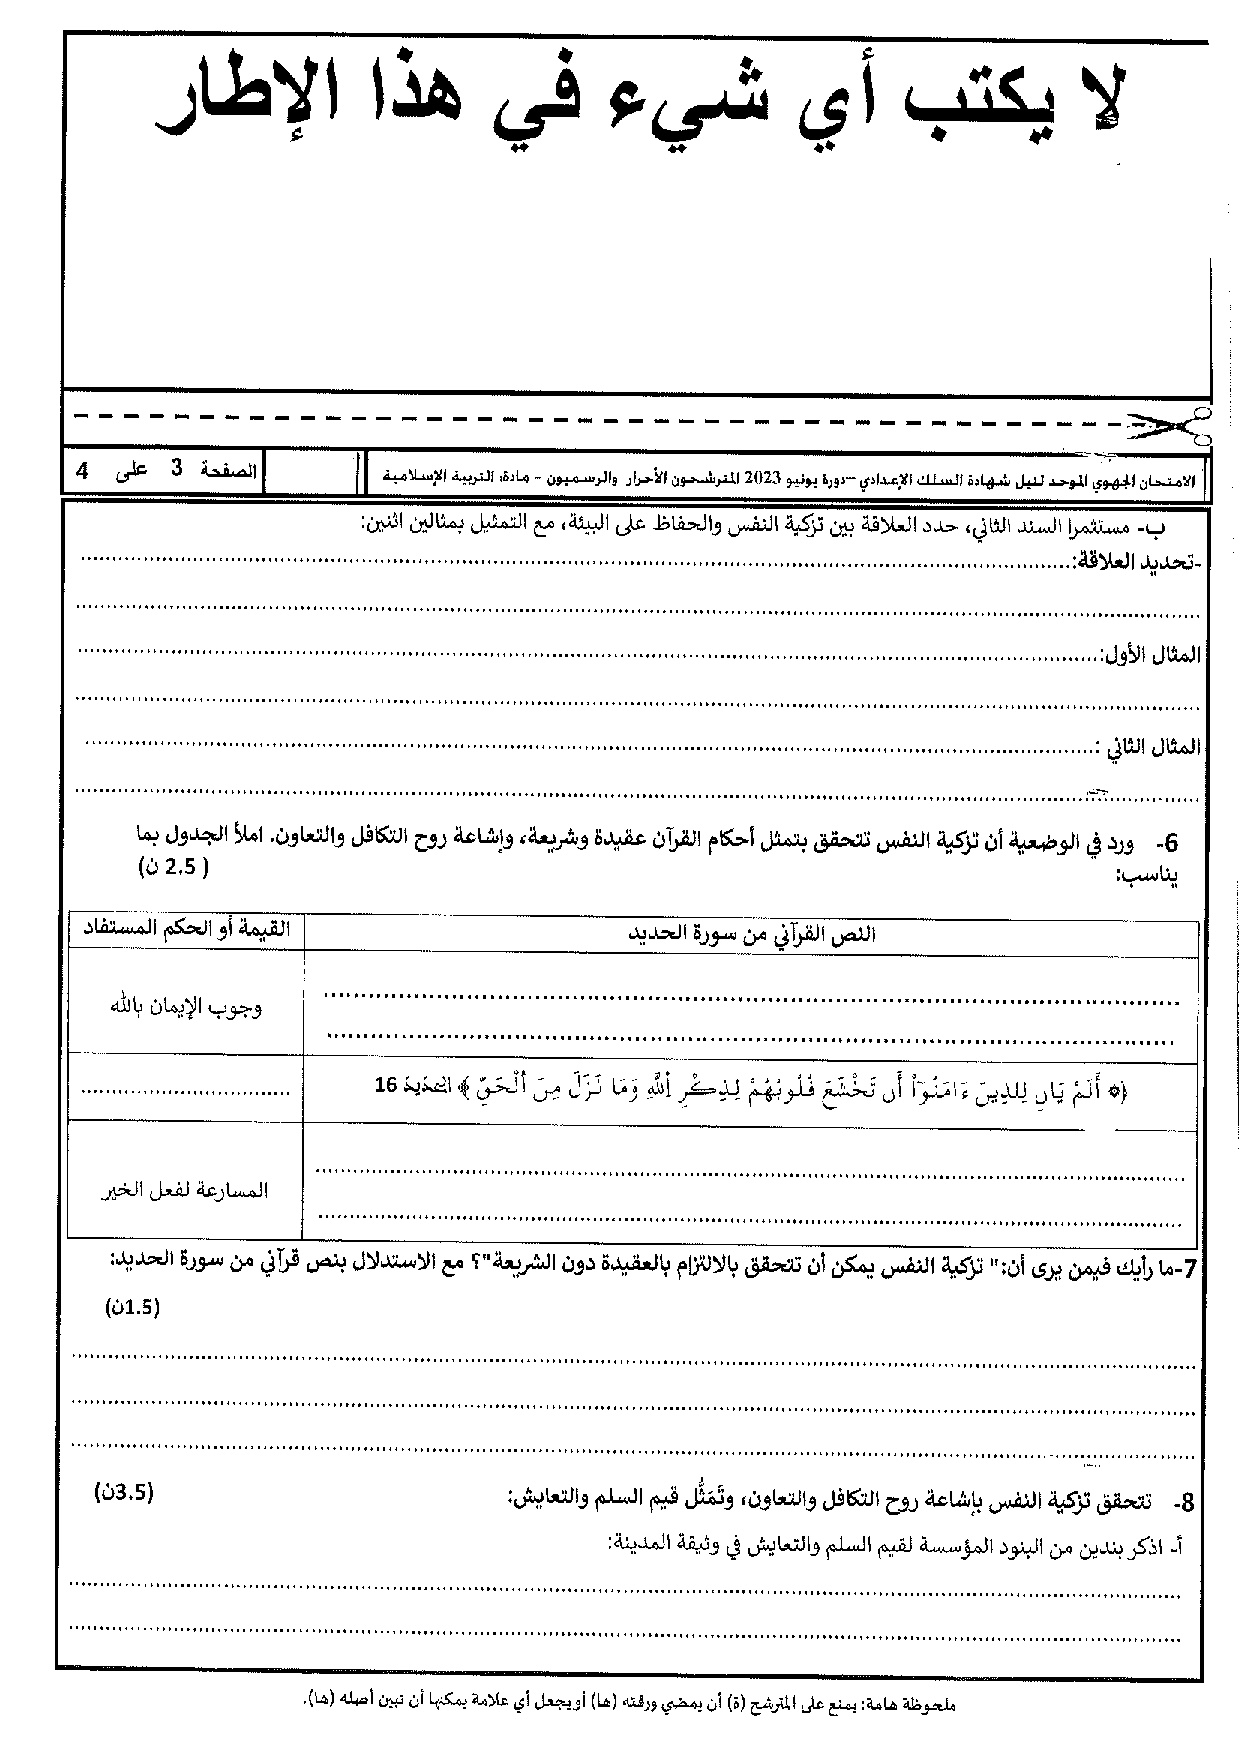 لا يكتب أي شيء في هذا الإطار
الامتحان الجهوي الموحد لنيل شهادة السلك الإعدادي –دورة يونيو 2023 المترشحون الأحرار والرسميون - مادة: التربية الإسلامية
الصفحة 3 على 4
ب- مستثمرا السند الثاني، حدد العلاقة بين تزكية النفس والحفاظ على البيئة، مع التمثيل بمثالين اثنين:
-تحديد العلاقة:
المثال الأول:
المثال الثاني :
6- ورد في الوضعية أن تزكية النفس تتحقق بتمثل أحكام القرآن عقيدة وشريعة، وإشاعة روح التكافل والتعاون. املأ الجدول بما
يناسب: ( 2.5 ن)
النص القرآني من سورة الحديد القيمة أو الحكم المستفاد
وجوب الإيمان بالله
﴿۞ أَلَمْ يَانِ لِلذِينَ ءَامَنُوٓاْ أَن تَخْشَعَ قُلُوبُهُمْ لِذِكْرِ اِ۬للَّهِ وَمَا نَزَلَ مِنَ اَ۬لْحَقِّ ﴾ الحديد 16
المسارعة لفعل الخير
7-ما رأيك فيمن يرى أن:" تزكية النفس يمكن أن تتحقق بالالتزام بالعقيدة دون الشريعة"؟ مع الاستدلال بنص قرآني من سورة الحديد:
(1.5ن)
8- تتحقق تزكية النفس بإشاعة روح التكافل والتعاون، وتَمَثُّل قيم السلم والتعايش: (3.5ن)
أ- اذكر بندين من البنود المؤسسة لقيم السلم والتعايش في وثيقة المدينة:
ملحوظة هامة: يمنع على المترشح (ة) أن يمضي ورقته (ها) أو يجعل أي علامة يمكنها أن تبين أصله (ها).